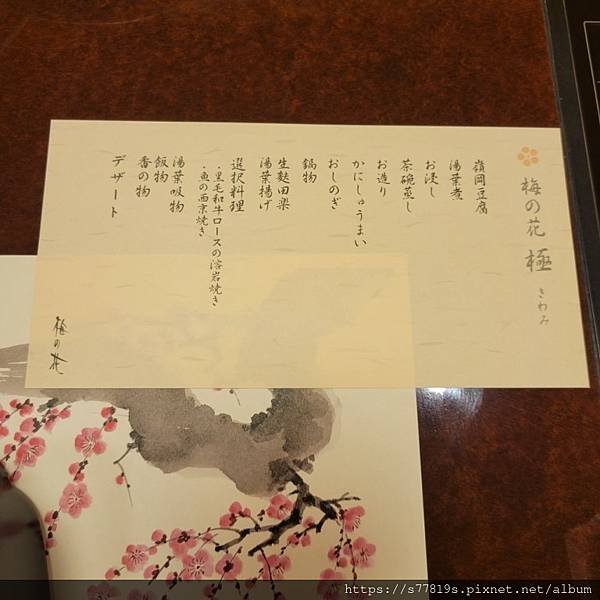 梅の花 極 きわみ
嶺岡豆腐
湯葉煮
お浸し
茶碗蒸し
お造り
かにしゅうまい
おしのぎ
鍋物
生麩田楽
湯葉揚げ
選択料理
・黒毛和牛ロースの溶岩焼き
・魚の西京焼き
湯葉吸物
飯物
香の物
デザート
梅の花
https://s77819s.pixnet.net/album